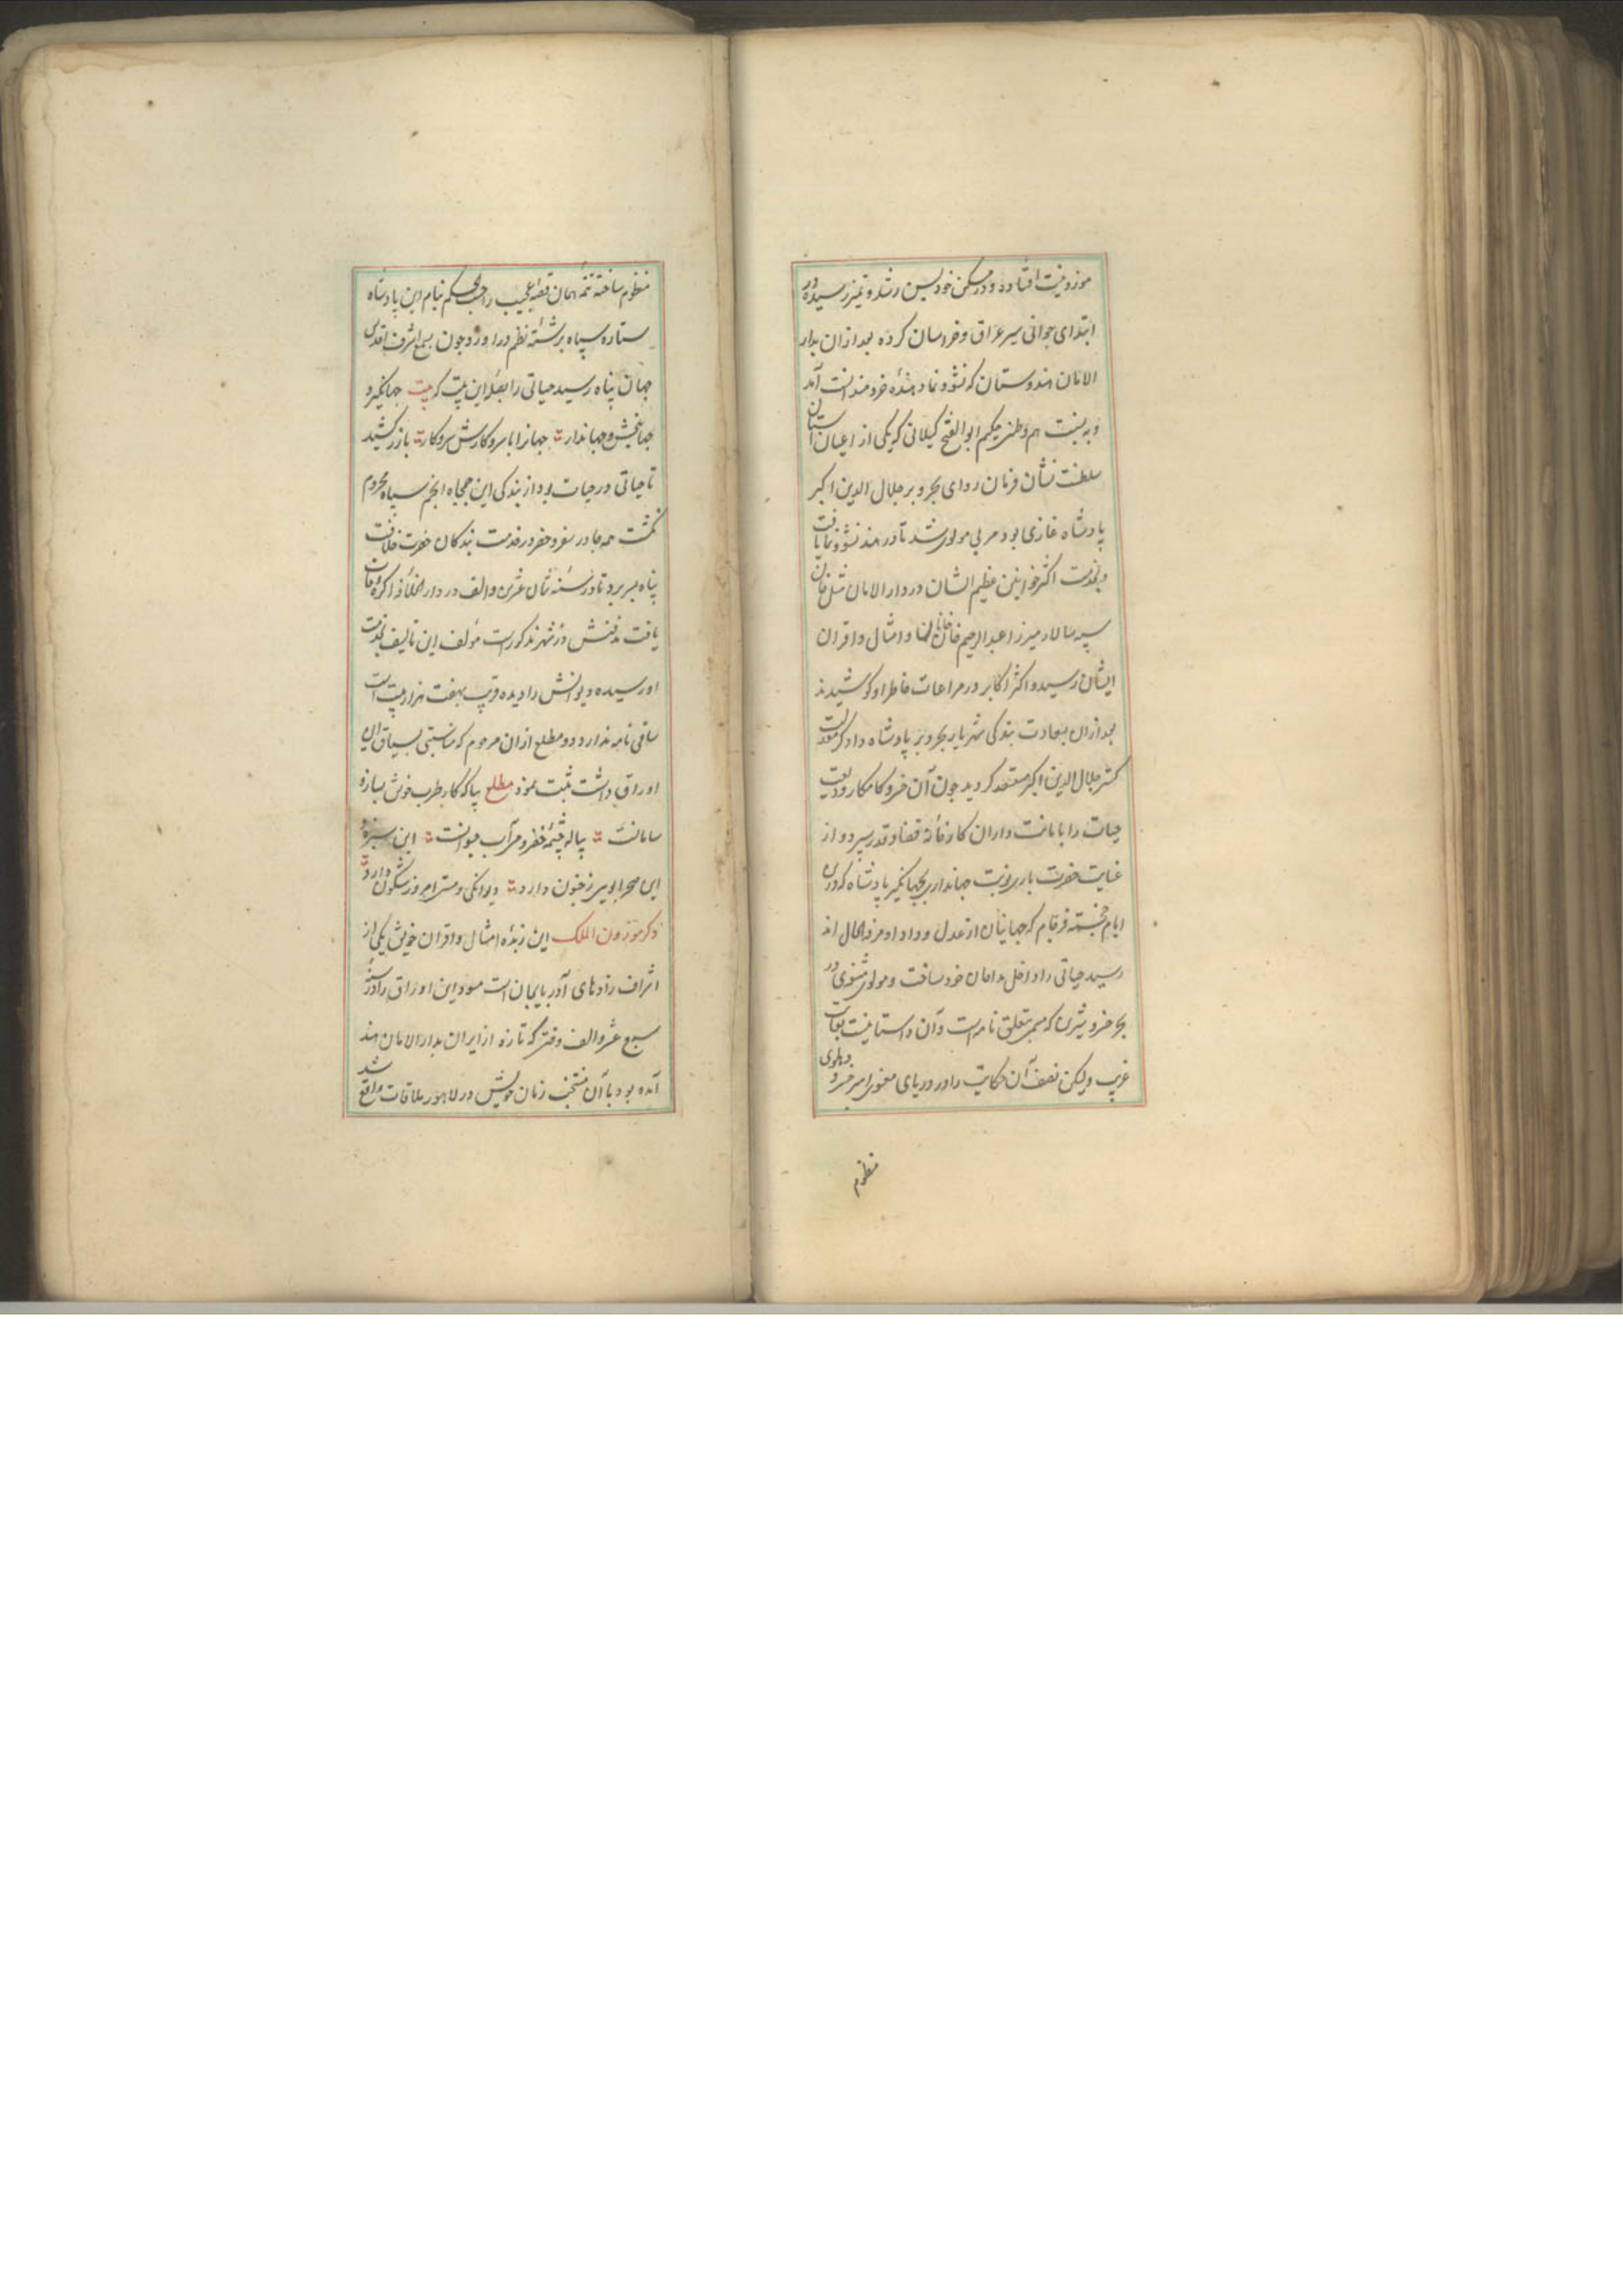 موزونیت افتاده و در مسکن خود بسن رشد و تمیز رسیده در
ابتدای جوانی سیر عراق و خراسان کرده بعد ازان بدار
الامان هندوستان که نشو و نما دهندهٔ خردمندانست آمد
و به نسبت هم وطنی حکیم ابوالفتح کیلانی که یکی از اعیان آستان
سلطنت نشان فرمان روای بحر و بر جلال الدین اکبر
پادشاه غازی بود مربی مولوی شد تا در هند نشو و نما یافت
و بخدمت اکثر خوانین عظیم الشان در دار الامان مثل خان
سپه سالار میرزا عبدالرحیم خان خانخانان و امثال و اقران
ایشان رسید و اکثر اکابر در مراعات خاطر او کوشیدند
بعد ازان بسعادت بندکی شهریار بحر و بر پادشاه دادکر معدلت
کستر جلال الدین اکبر مستعد کردید چون آن خسرو کامکار ودیعت
حیات را بامانت داران کارخانهٔ قضا و قدر سپرد و از
عنایت حضرت باری نوبت جهانداری بجهانکیر پادشاه که درین
ایام خجسته فرجام که جهانیان از عدل و داد او مرفه الحال اند
رسید حیاتی را داخل مداحان خود ساخت و مولوی مثنوی در
بحر خسرو شیرین که مسمی بتغلق نامه است و آن داستانیست بغایت
غریب ولیکن نصف آن حکایت را در دریای معنوی امیر خسرو دهلوی
منظوم
منظوم ساخته تتمهٔ همان قصهٔ عجیب را حسب الحکم بنام این پادشاه
ستاره سپاه برشتهٔ نظم در اورد و چون بسمع اشرف اقدس
جهان پناه رسید حیاتی را بصلهٔ این بیت که بیت جهانکیر و
جهانبخش و جهاندار جهانرا با سر و کارش سر و کار بزر کشید
تا حیاتی در حیات بود از بندکی این جمجاه انجم سپاه محروم
نکشت همه جا در سفر و حضر در خدمت بندکان حضرت خلافت
پناه بسر برد تا در سنهٔ ثمان عشرین و الف در دار الخلافه اکره وفات
یافت مدفنش در شهر مذکورست مؤلف این تالیف بخدمت
او رسیده و دیوانش را دیده قریب بهفت هزار بیت است
ساقی نامه ندارد دو مطلع ازان مرحوم که مناسبتی بسیاق این
اوراق داشت ثبت نمود مطلع بیا که کار طرب خوش بساز و
سامانست پیاله چشمهٔ خضر و می آب حیوانست این سبزه و
این صحرا بوییز جنون دارد دیوانکی و مستی امروز شکون دارد
ذکر موزون الملک این زبدهٔ امثال و اقران خویش یکی از
اشراف زادهای آذربایجان است مسود این اوراق را در سنهٔ
سبع عشر و الف وقتی که تازه از ایران بدار الامان هند
آمده بود با آن منتخب زمان خویش در لاهور ملاقات واقع شد